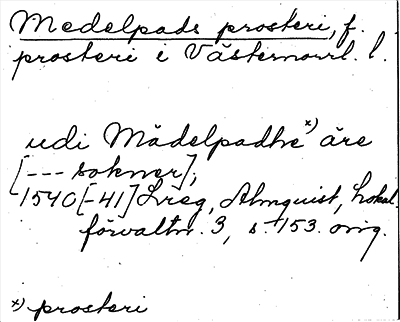 Medelpads prosteri, f.
prosteri i Västernorrl. l.
udi Mädelpadhe x) äre
[--- sokner],
1540[-41] Lreg, Almquist, Lokal-
förvaltn. 3, s. 153. orig.
x) prosteri